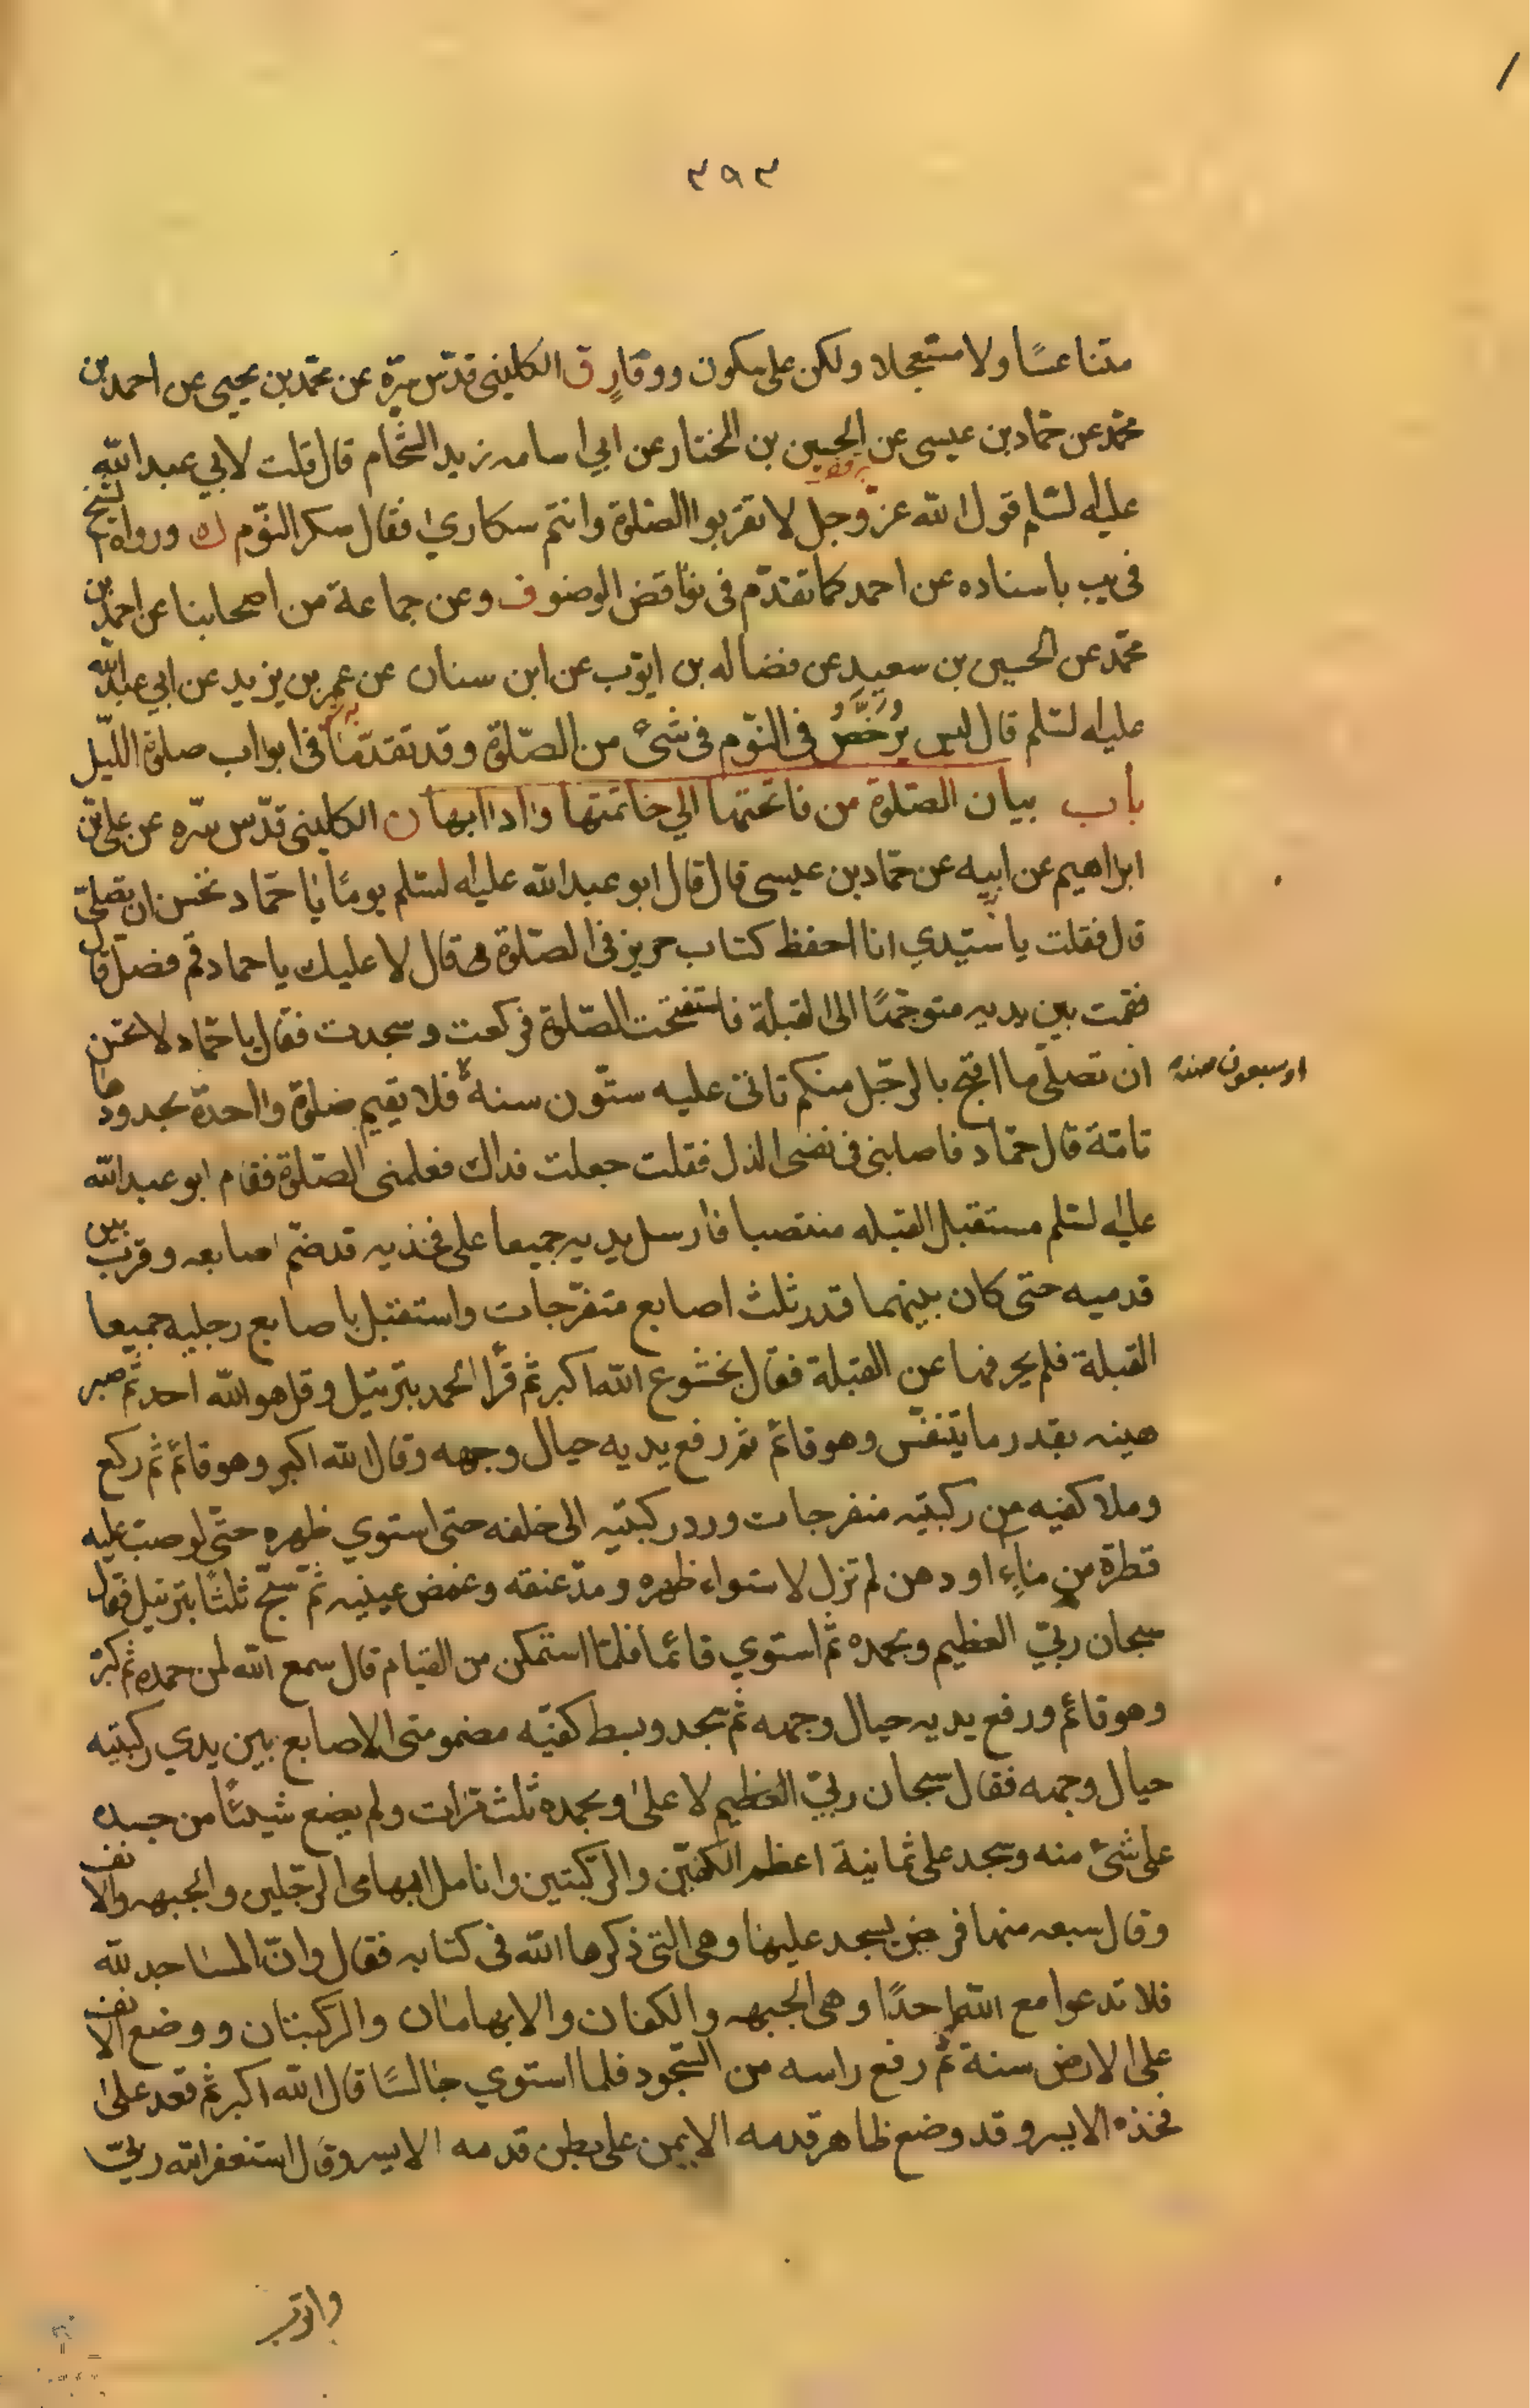 ٣٩٣
متناعسًا ولا مستعجلا ولكن على سكون ووقارٍ ق الكليني قدّس سرّه عن محمّد بن يحيى عن احمد بن
محمّد عن حمّاد بن عيسى عن الحسين بن المختار عن ابي اسامه زيد الشّحام قال قلت لابي عبد الله
عليه السّلم قول الله عزّ وجل لا تقربوا الصّلوة وانتم سكاري فقال سكر النّوم ك ورواه الشيخ
في يب باسناده عن احمد كما تقدّم في نواقض الوضو ف وعن جماعة من اصحابنا عن احمد بن
محمّد عن الحسين بن سعيد عن فضاله بن ايّوب عن ابن سنان عن عمر بن يزيد عن ابي عبد الله
عليه السّلم قال ليس يُرَخَّصُ في النّوم في شئ من الصّلوة وقد تقدّمنا في ابواب صلوة اللّيل
باب بيان الصّلوة من فاتحتها الي خاتمتها واداابها ن الكليني قدّس سّره عن علي بن
ابراهيم عن ابيه عن حمّاد بن عيسى قال قال ابو عبد الله عليه السّلم يومًا يا حمّاد تحسن ان تصلّي
قال فقلت يا سيّدي انا احفظ كتاب حريز في الصّلوة قال لا عليك يا حماد قم فصلّ قال
فقمت بين يديه متوجّهًا الى القبلة فاستفتحت الصّلوة فركعت وسجدت فقال يا حمّاد لا تحسن
ان تصلّي ما اقبح بالرجّل منكم تاتي عليه ستّون سنةً فلا يقيم صلوة واحدة بحدودها
او سبعون سنة
تامّة قال حمّاد فاصابني في نفسي الذل فقلت جعلت فداك فعلمني الصّلوة فقام ابو عبد الله
عليه السّلم مستقبل القبله منتصبا فارسل يديه جميعا على فخذيه قد ضمّ اصابعه وقرب بين
قدميه حتّى كان بينهما قدر ثلث اصابع متفرّجات واستقبل باصابع رجليه جميعا
القبلة فلم يحرفهما عن القبلة فقال بخشوع الله اكبر ثم قرأ الحمد بترتيل وقل هو الله احد ثم صبر
هينه بقدر ما يتنفّس وهو قائم ثم رفع يديه حيال وجهه وقال الله اكبر وهو قائم ثم ركع
وملا كفيه من ركبتيه منفرجات ورد ركبتيه الى خلفه حتى استوي ظهره حتّى لو صبّ عليه
قطرة من ماءٍ او دهن لم تزل لاستواء ظهره ومدّ عنقه وغمض عينيه ثمّ سبّح ثلثًا بترتيل فقال
سبحان ربّي العظيم وبحمده ثم استوي قائما فلمّا استمكن من القيام قال سمع الله لمن حمده ثم كبّر
وهو قائم ورفع يديه حيال وجهه ثم سجد وبسط كفيّه مضمومتي الاصابع بين يدي ركبتيه
حيال وجهه فقال سبحان ربّي العظيم لا على وبحمده ثلث مرّات ولم يضع شيئًا من جسده
على شئ منه وسجد على ثمانية اعظم الكفّين والرّكبتين وانامل ابهامي الرجّلين والجبهه والانف
وقال سبعه منها فرض يسجد عليها وهي التي ذكرها الله في كتابه فقال وانّ المساجد لله
فلا تدعوا مع الله احدًا وهي الجبهه والكفان والابهامان والركبتان ووضع الانف
على الارض سنة ثم رفع راسه من السّجود فلما استوي جالسًا قال الله اكبر ثم قعد على
فخذه الايسر وقد وضع ظاهر قدمه الايمن على بطن قدمه الايسر وقال استغفر الله ربّي
واتوب